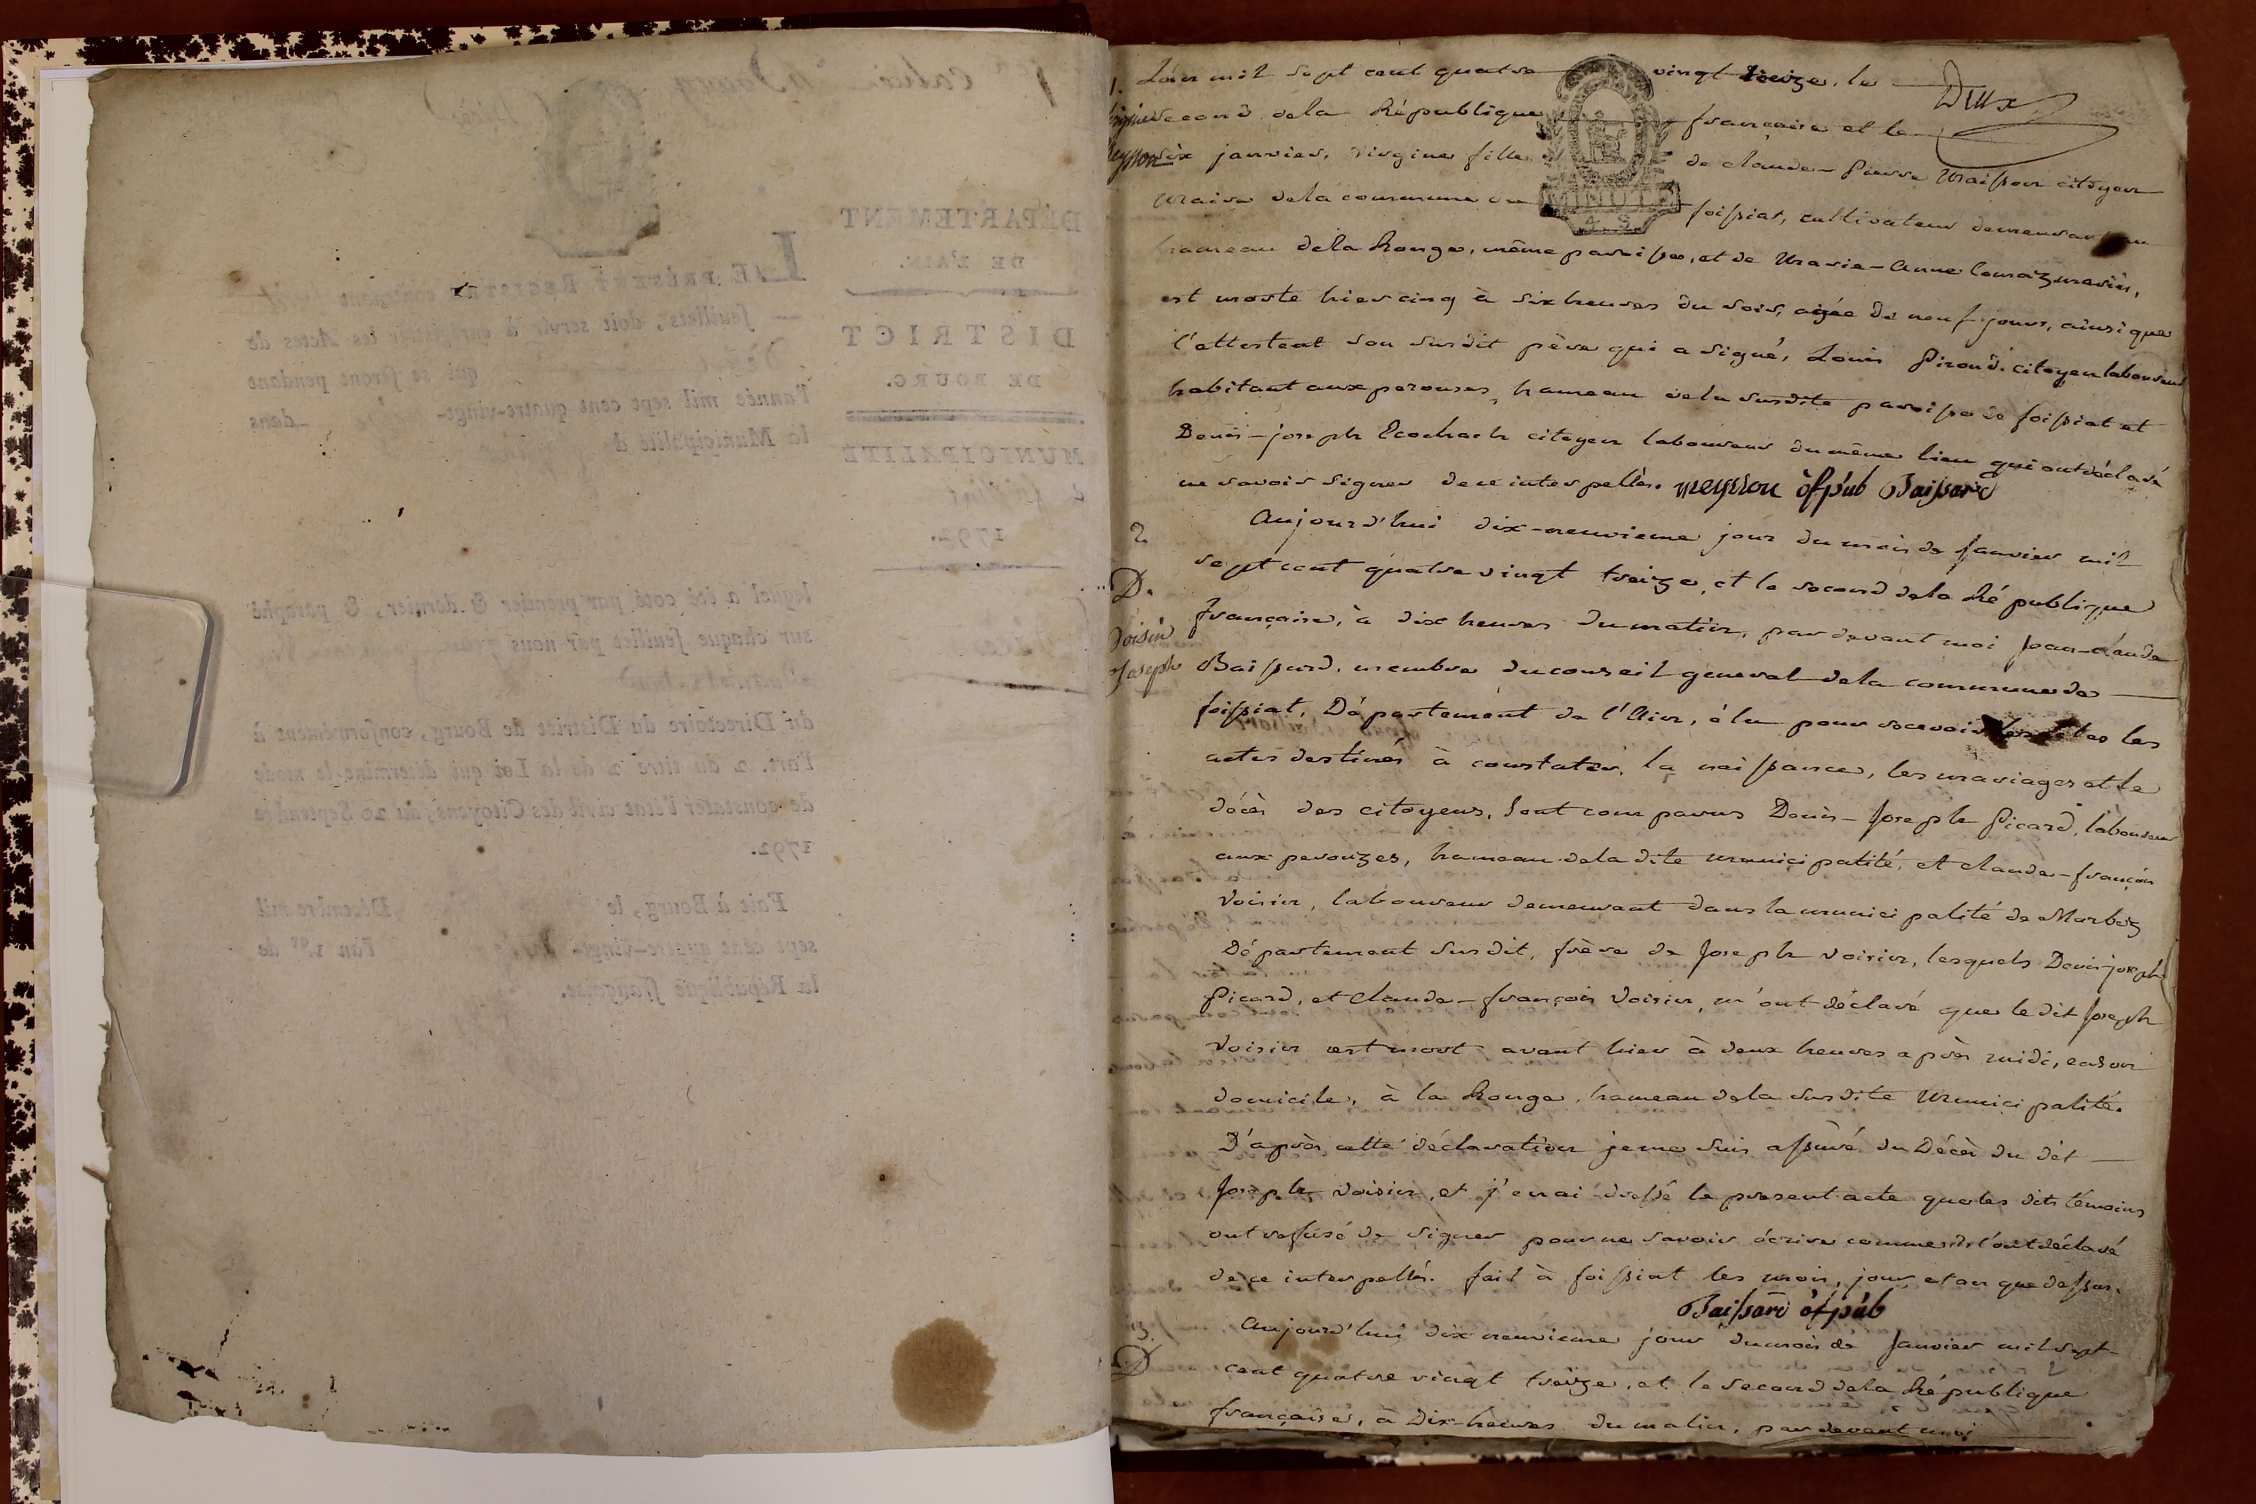 DÉPARTEMENT
DE L'AIN.
DISTRICT
DE BOURG.
MUNICIPALITÉ
LE PRÉSENT REGISTRE contenant
feuillets, doit servir à enregistrer les Actes de
qui se feront pendant
l'année mil sept cent quatre-vingt- dans
la Municipalité d
lequel a été coté par premier & dernier, & paraphé
sur chaque feuillet par nous
du Directoire du District de Bourg, conformément à
l'art. 2 du titre 2 de la Loi qui détermine le mode
de constater l'état civil des Citoyens, du 20 Septembre
1792.
Fait à Bourg, le Décembre mil
sept cent quatre-vingt- l'an 1.er de
la République françoise.
1. L'an mil sept cent quatre vingt treize, le
second de la République française et le
six janvier, virginie fille de claude-Pierre citoyen
maire de la commune de foissiat, cultivateur demeurant au
hameau de la Rouge, même paroisse, et de Marie-Anne
est morte hier cinq à six heures du soir, agée de neuf jours, ainsi que
l'attestent son susdit père qui a signé, Louis Piroud citoyen laboureur
habitant aux perouses, hameau de la susdite paroisse de foissiat et
Denis-joseph Ecochach citoyen laboureur du même lieu qui ont déclaré
ne savoir signer de ce interpellés. meysson of pub Baissard
MINUTE
2.
D.
Voisin
Joseph
Aujourd'hui dix-neuvieme jour du mois de Janvier mil
sept cent quatre vingt treize, et le second de la République
française, à dix heures du matin, par devant moi Jean-claude
Baissard, membre du conseil general de la commune de
foissiat, Département de l'Ain, élu pour recevoir les
actes destinés à constater la naissance, les mariages et le
décès des citoyens, sont comparus Denis-Joseph Picard, laboureur
aux perouzes, hameau de la dite municipalité, et claude-françois
Voisin, laboureur demeurant dans la municipalité de Marboz
Département susdit, frère de Joseph voisin, lesquels Denis joseph
Picard, et claude-françois Voisin, m'ont déclaré que le dit Joseph
Voisin est mort avant hier à deux heures après midi, en son
domicile, à la Rouge, hameau de la susdite municipalité.
D'après cette déclaration je me suis assuré du Décès du dit
Joseph voisin, et j'en ai dressé le present acte que les dits témoins
ont refusé de signer pour ne savoir écrire comme ils l'ont déclaré
de ce interpellés. fait à foissiat les mois, jour et an que dessus.
Baissard of pub
3.
D
Aujourd'hui dix neuvieme jour du mois de Janvier mil sept
cent quatre vingt treize, et le second de la République
française, à Dix-heures du matin, par devant moi